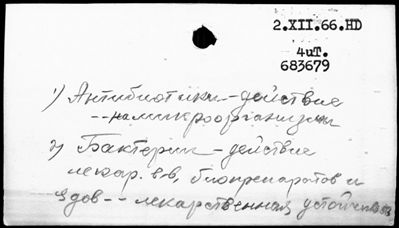 2.XII.66.HD
4uT.
683679
1) Антибиотики - действие
-- на микроорганизмы
2) Бактерии - действие
лекар. в-в, биопрепаратов и
ядов -- лекарственная